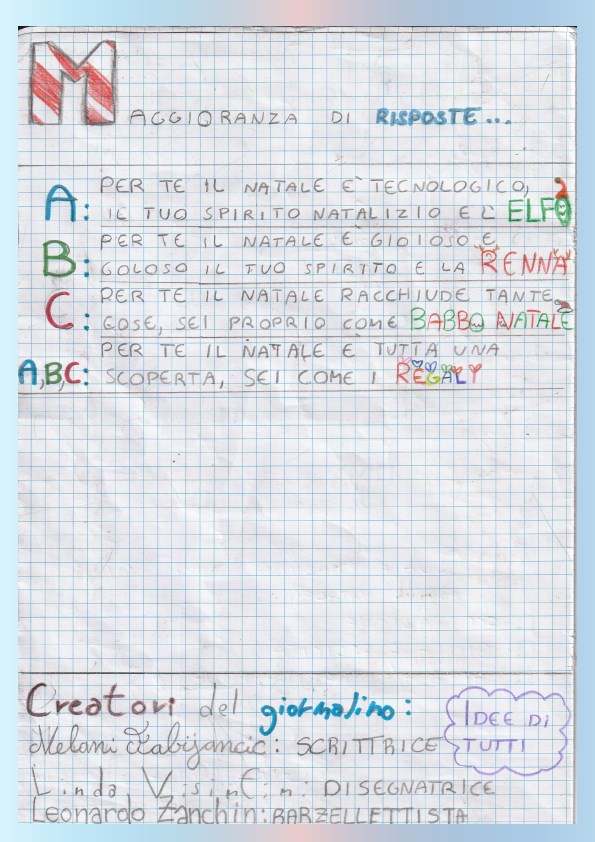 MAGGIORANZA DI RISPOSTE...
PER TE IL NATALE È TECNOLOGICO,
A: IL TUO SPIRITO NATALIZIO E L' ELFO
PER TE IL NATALE È GIOIOSO E
B: GOLOSO IL TUO SPIRITO E LA RENNA
PER TE IL NATALE RACCHIUDE TANTE
C: COSE, SEI PROPRIO COME BABBO NATALE
PER TE IL NATALE È TUTTA UNA
A,B,C: SCOPERTA, SEI COME I REGALI
Creatori del giornalino:
IDEE DI
TUTTI
Melani : SCRITTRICE
Linda Visintin: DISEGNATRICE
Leonardo Zanchin: BARZELLETTISTA